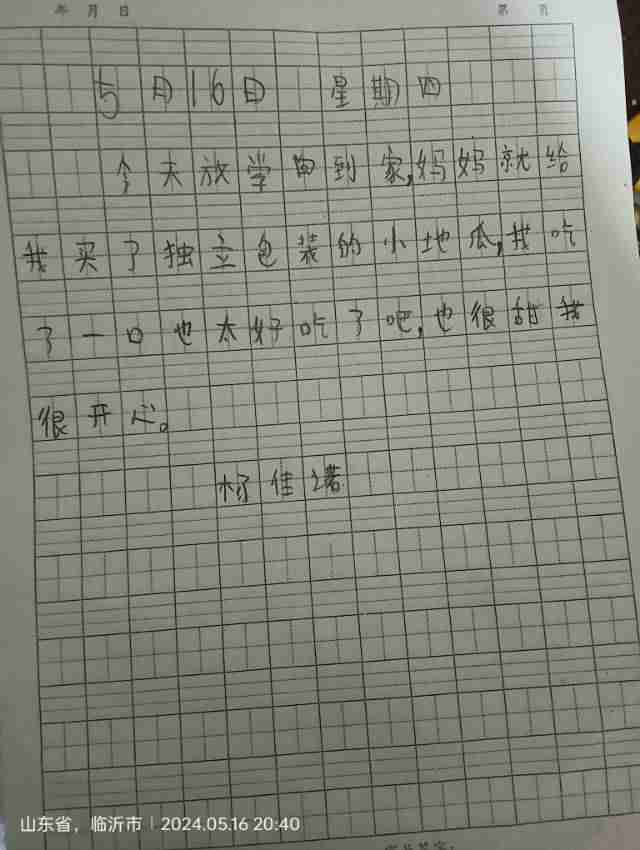 年 月 日 第 页
5月16日 星期四
今天放学回到家,妈妈就给
我买了独立包装的小地瓜,我吃
了一口也太好吃了吧,也很甜我
很开心。
杨佳诺
山东省,临沂市 | 2024.05.16 20:40